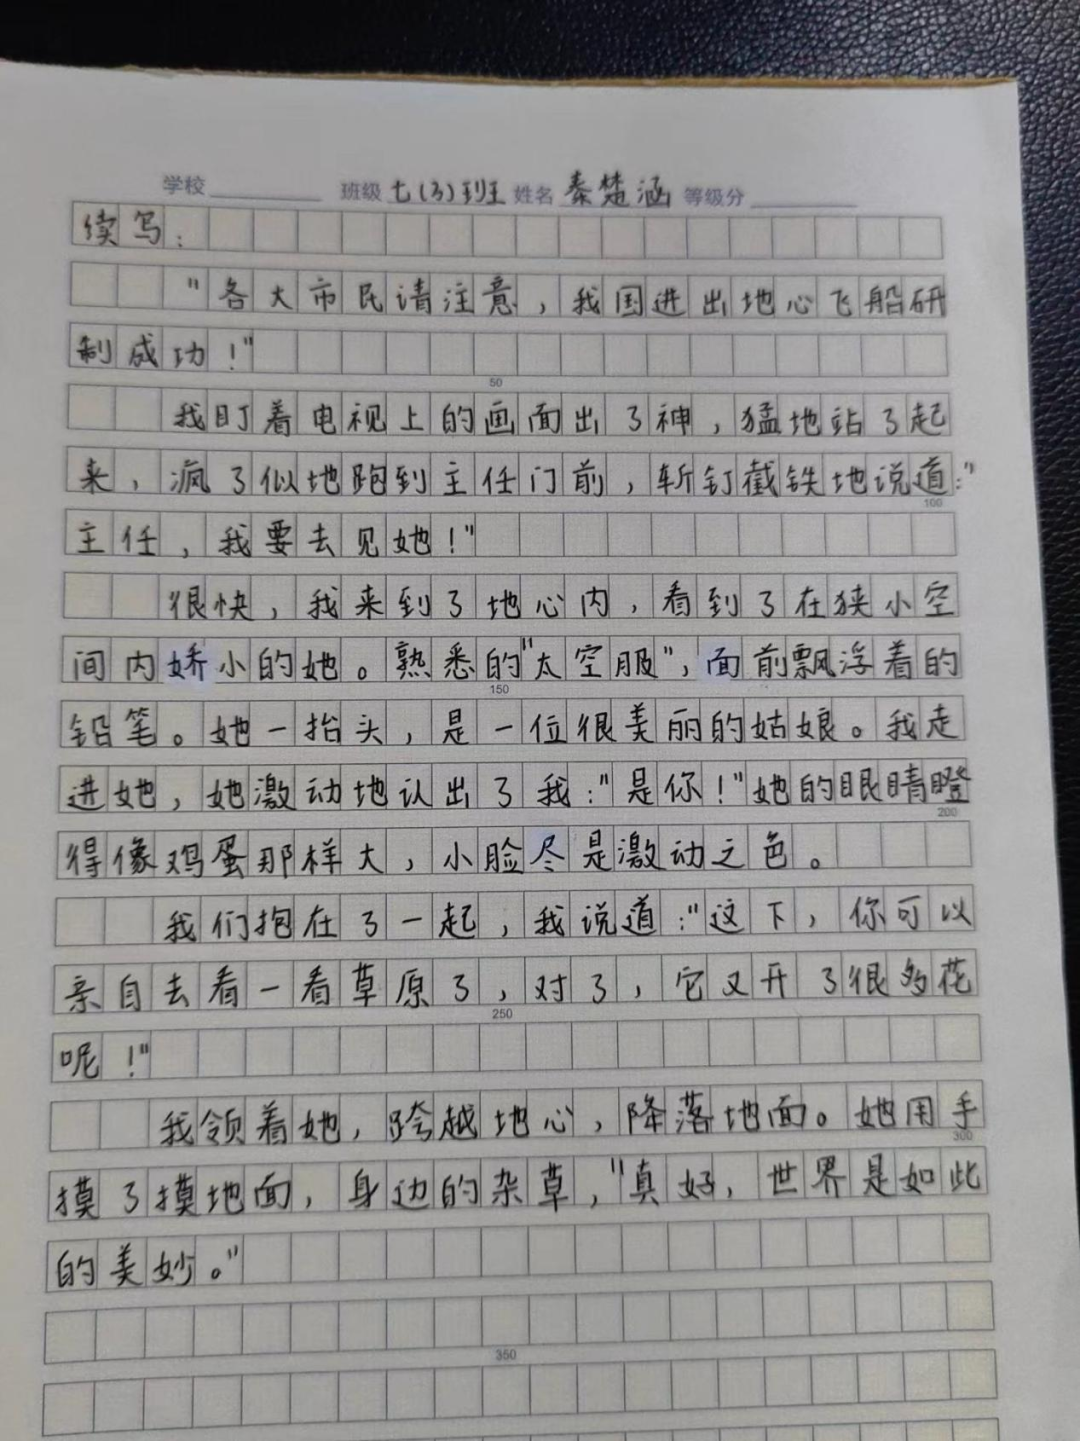 学校 班级 七(3)班 姓名 秦楚涵 等级分
续写:
"各大市民请注意,我国进出地心飞船研
制成功!"
50
我盯着电视上的画面出了神,猛地站了起
来,疯了似地跑到主任门前,斩钉截铁地说道:"
100
主任,我要去见她!"
很快,我来到了地心内,看到了在狭小空
间内娇小的她。熟悉的"太空服",面前飘浮着的
150
铅笔。她一抬头,是一位很美丽的姑娘。我走
进她,她激动地认出了我:"是你!"她的眼睛瞪
200
得像鸡蛋那样大,小脸尽是激动之色。
我们抱在了一起,我说道:"这下,你可以
亲自去看一看草原了,对了,它又开了很多花
250
呢!"
我领着她,跨越地心,降落地面。她用手
300
摸了摸地面,身边的杂草,"真好,世界是如此
的美妙。"
350